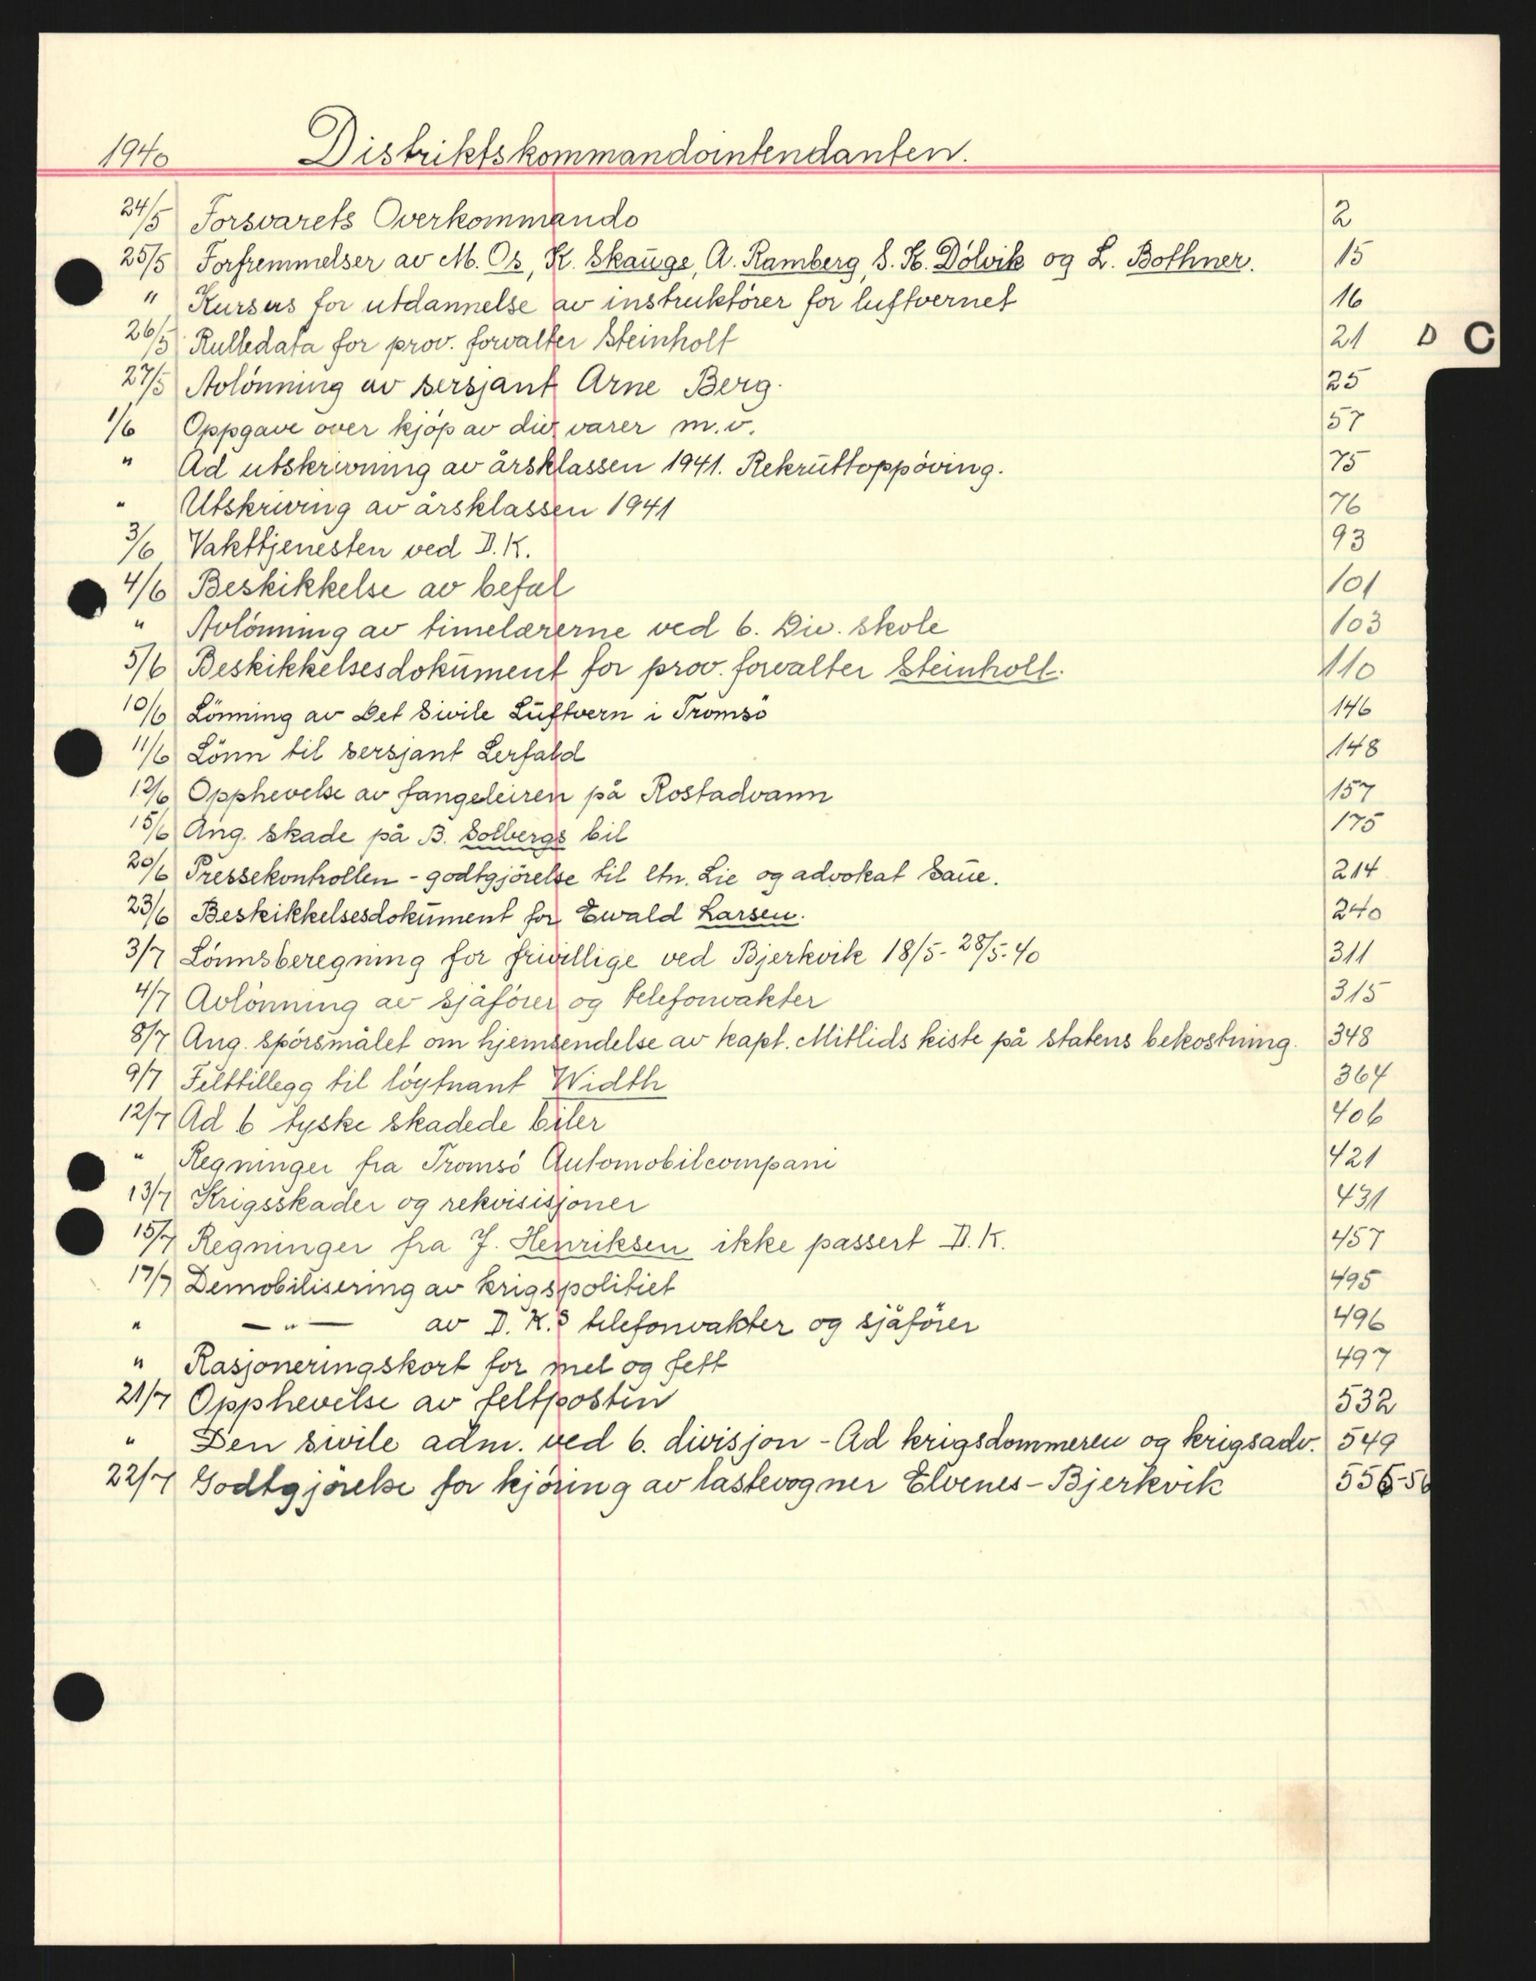 1940 Distriktskommandointendanten.
24/5 Forsvarets Overkommando 2
25/5 Forfremmelser av M. Os, K. Skauge, A. Ramberg, S. K. Dólvik og L. Bothner. 15
" Kursus for utdannelse av instruktórer for luftvernet 16
26/5 Rulledata for prov. forvalter Steinholt 21 D C
27/5 Avlónning av sersjant Arne Berg. 25
1/6 Oppgave over kjóp av div. varer m.v. 57
" Ad utskrivning av årsklassen 1941. Rekruttoppóving. 75
" Utskriving av årsklassen 1941 76
3/6 Vakttjenesten ved D.K. 93
4/6 Beskikkelse av befal 101
" Avlónning av timelærerne ved 6. Div. skole 103
5/6 Beskikkelsesdokument for prov. forvalter Steinholt. 110
10/6 Lönning av Det Sivile Luftvern i Tromsö 146
11/6 Lönn til sersjant Lerfald 148
12/6 Opphevelse av fangeleiren på Rostadvann 157
15/6 Ang. skade på B. Solbergs bil 175
20/6 Pressekontrollen - godtgjörelse til ltn. Lie og advokat Saue. 214
23/6 Beskikkelsesdokument for Ewald Larsen. 240
3/7 Lónnsberegning for frivillige ved Bjerkvik 18/5-28/5-40 311
4/7 Avlónning av sjåfórer og telefonvakter 315
8/7 Ang. spórsmålet om hjemsendelse av kapt. Mitlids kiste på statens bekostning. 348
9/7 Felttillegg til lóytnant Width 364
12/7 Ad 6 tyske skadede biler 406
" Regninger fra Tromsó Automobilcompani 421
13/7 Krigsskader og rekvisisjoner 431
15/7 Regninger fra J. Henriksen ikke passert D.K. 457
17/7 Demobilisering av krigspolitiet 495
" — " — av D.K.s telefonvakter og sjåfórer 496
" Rasjoneringskort for mel og fett 497
21/7 Opphevelse av feltposten 532
" Den sivile adm. ved 6. divisjon - Ad krigsdommeren og krigsadv. 549
22/7 Godtgjórelse for kjóring av lastevogner Elvenes - Bjerkvik